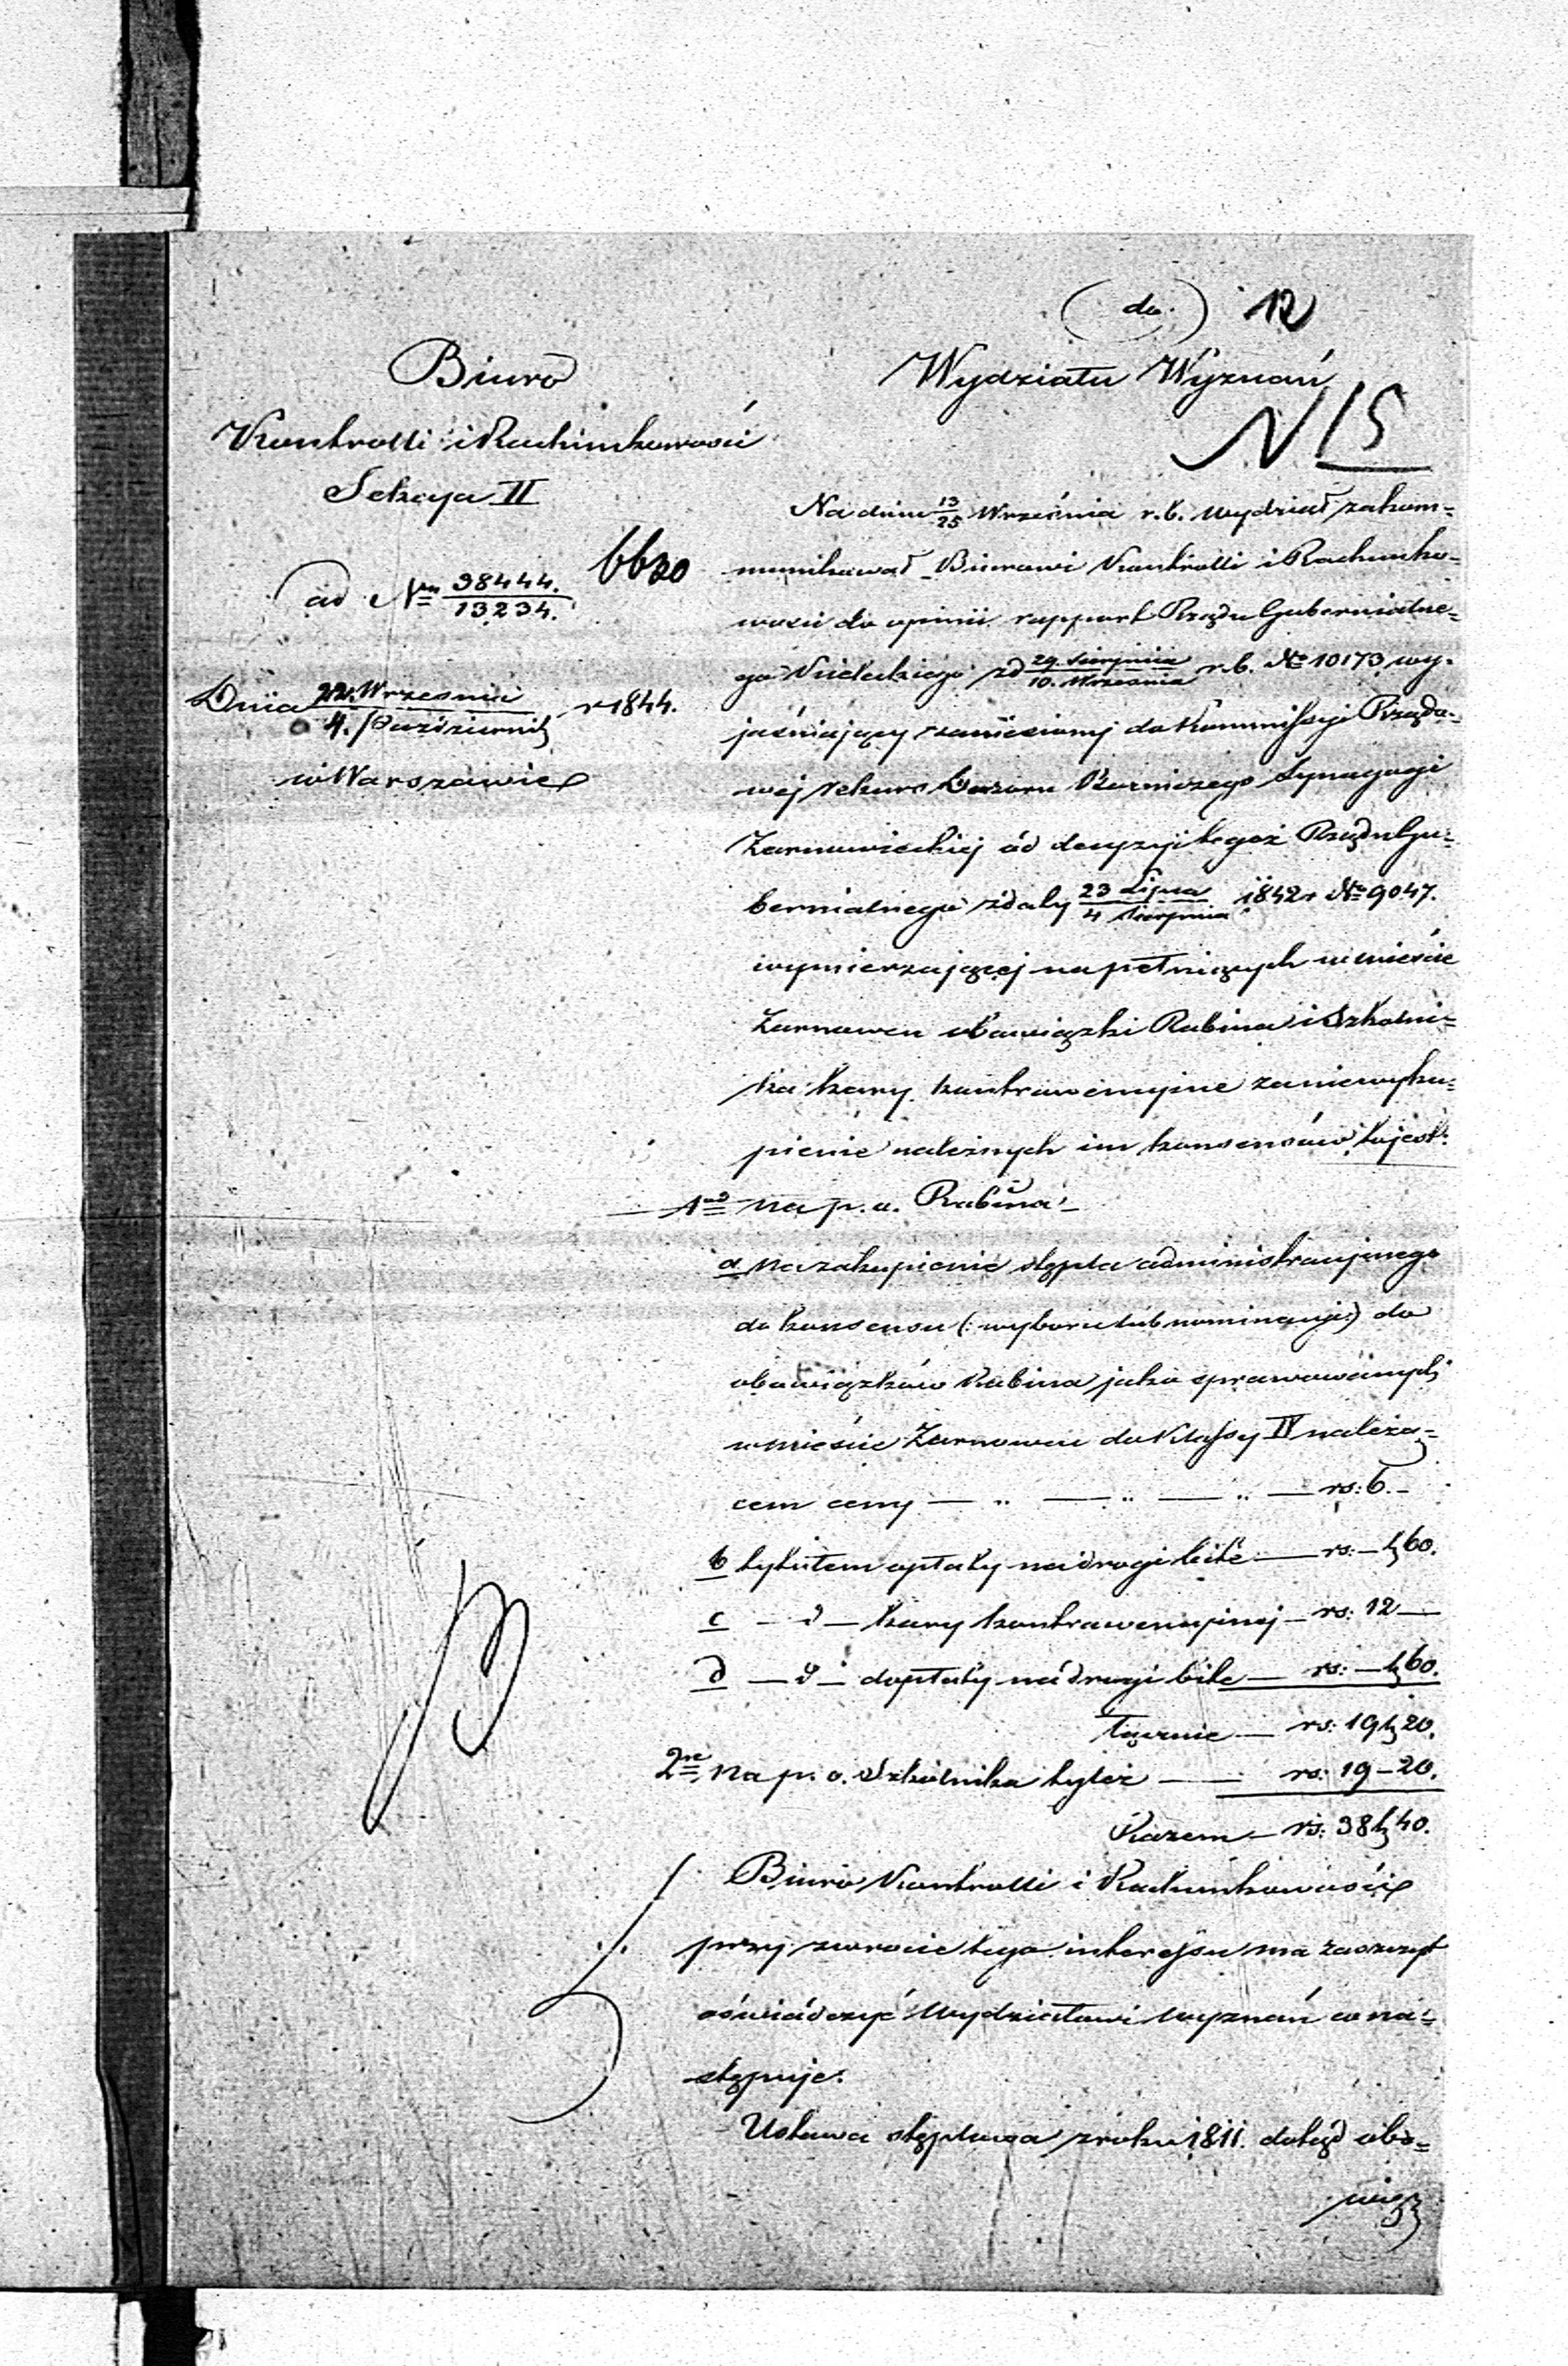 (do) 12
Biuro
Kontrolli i Rachunkowości
Sekcya II
6620
ad Nrm 38444./13234.
Dnia 22. Września/4. Październik r 1844.
w Warszawie
Wydziału Wyznań
N 15
Na dniu 13/25 Września r.b. Wydział zakom=
munikował Biurowi Kontrolli i Rachunko=
wości do opinii rapport Rządu Gubernialne=
go Kieleckiego zd 29. Sierpnia/10. Września r.b. No 10173 wy=
jaśniający zaniesiony do Kommissyi Rządo=
wéj rekurs Dozoru Bożniczego Synagogi
Żarnowieckiéj od decyzyi tegoż Rządu Gu=
bernialnego zdaty 23 Lipca/4 Sierpnia 1842 r No 9047.
wymierzającéj na pełniących w mieście
Żarnowcu obowiązki Rabina i Szkolni=
ka kary kontrawencyjne za niewyku=
pienie należnych im konsensów, to jest:
1mo na p. o. Rabina
a na zakupienie stępla administracyjnego
do konsensu (: wyboru lub nominacyi:) do
obowiązków Rabina jako sprawowanych
w mieście Żarnowcu do Klassy IV należą=
cem ceny — „ — „ — „ — rs: 6. -
b tytułem opłaty na drogi bite — rs: — k 60.
c — d — kary kontrawencyjnej — rs: 12 —
d — d — dopłaty na drogi bite — rs: — k 60.
Łącznie — rs: 19 k 20.
2re na p. o. Szkolnika tyleż — rs: 19 - 20.
Razem — rs: 38 k 40.
Biuro Kontrolli i Rachunkowości
przy zwrocie tego interessu ma zaszczyt
oświadczyć Wydziałowi Wyznań co na=
stępuje:
Ustawa stęplowa z roku 1811. dotąd obo=
wiąz